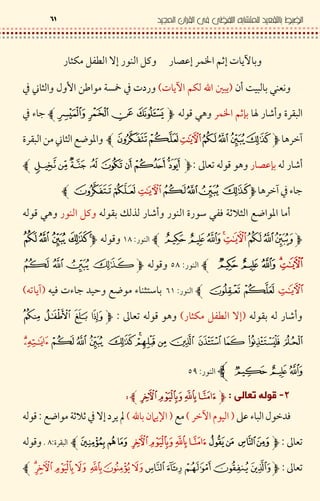 الضبط بالتقعيد للمتشابه اللفظي في القرآن المجيد ٦١
وبالآيات إثم الخمر إعصار وكل النور إلا الطفل مكثار
ونعني بالبيت أن (يبين الله لكم الآيات) وردت في خمسة مواطن الأول والثاني في
البقرة وأشار لها بإثم الخمر وهي قوله ﴿ يَسْـَٔلُونَكَ عَنِ ٱلْخَمْرِ وَٱلْمَيْسِرِ ﴾ جاء في
آخرها ﴿ كَذَٰلِكَ يُبَيِّنُ ٱللَّهُ لَكُمُ ٱلْـَٔايَٰتِ لَعَلَّكُمْ تَتَفَكَّرُونَ ﴾ والموضع الثاني من البقرة
أشار له بإعصار وهو قوله تعالى : ﴿ أَيَوَدُّ أَحَدُكُمْ أَن تَكُونَ لَهُۥ جَنَّةٌ مِّن نَّخِيلٍ ﴾
جاء في آخرها ﴿ كَذَٰلِكَ يُبَيِّنُ ٱللَّهُ لَكُمُ ٱلْـَٔايَٰتِ لَعَلَّكُمْ تَتَفَكَّرُونَ ﴾
أما المواضع الثلاثة ففي سورة النور وأشار لذلك بقوله وكل النور وهي قوله
﴿ وَيُبَيِّنُ ٱللَّهُ لَكُمُ ٱلْـَٔايَٰتِ وَٱللَّهُ عَلِيمٌ حَكِيمٌ ﴾ النور: ١٨ وقوله ﴿ كَذَٰلِكَ يُبَيِّنُ ٱللَّهُ لَكُمُ
ٱلْـَٔايَٰتِ وَٱللَّهُ عَلِيمٌ حَكِيمٌ ﴾ النور: ٥٨ وقوله ﴿ كَذَٰلِكَ يُبَيِّنُ ٱللَّهُ لَكُمُ
ٱلْـَٔايَٰتِ لَعَلَّكُمْ تَعْقِلُونَ ﴾ النور: ٦١ باستثناء موضع وحيد جاءت فيه (آياته)
وأشار له بقوله (إلا الطفل مكثار) وهو قوله تعالى : ﴿ وَإِذَا بَلَغَ ٱلْأَطْفَٰلُ مِنكُمُ
ٱلْحُلُمَ فَلْيَسْتَـْٔذِنُوا۟ كَمَا ٱسْتَـْٔذَنَ ٱلَّذِينَ مِن قَبْلِهِمْ كَذَٰلِكَ يُبَيِّنُ ٱللَّهُ لَكُمْ ءَايَٰتِهِۦ
وَٱللَّهُ عَلِيمٌ حَكِيمٌ ﴾ النور: ٥٩
٢- قوله تعالى : ﴿ ءَامَنَّا بِٱللَّهِ وَبِٱلْيَوْمِ ٱلْـَٔاخِرِ ﴾ :
فدخول الباء على (اليوم الآخر) مع (الإيمان بالله) لم يرد إلا في ثلاثة مواضع : قوله
تعالى : ﴿ وَمِنَ ٱلنَّاسِ مَن يَقُولُ ءَامَنَّا بِٱللَّهِ وَبِٱلْيَوْمِ ٱلْـَٔاخِرِ وَمَا هُم بِمُؤْمِنِينَ ﴾ البقرة: ٨، وقوله
تعالى : ﴿ وَٱلَّذِينَ يُنفِقُونَ أَمْوَٰلَهُمْ رِئَآءَ ٱلنَّاسِ وَلَا يُؤْمِنُونَ بِٱللَّهِ وَلَا بِٱلْيَوْمِ ٱلْـَٔاخِرِ ﴾